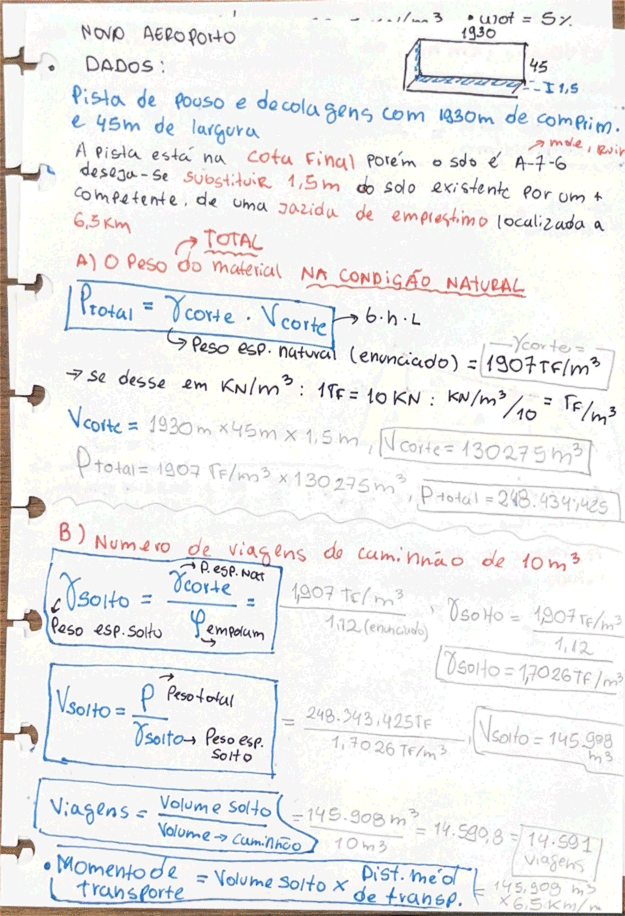 /m3 • ωot = 5%
NOVO AEROPORTO
1930
• DADOS:
45
I 1,5
Pista de pouso e decolagens com 1930m de comprim.
e 45m de largura
→ mole, ruim
A pista está na cota final porém o solo é A-7-6
deseja-se substituir 1,5m do solo existente por um +
competente, de uma jazida de empréstimo localizada a
6,5Km
→ TOTAL
A) O Peso do material NA CONDIÇÃO NATURAL
Ptotal = γcorte . Vcorte → b.h.L
→ Peso esp. natural (enunciado) = γcorte = 1907 TF/m³
→ se desse em KN/m³: 1TF = 10KN : KN/m³/10 = TF/m³
Vcorte = 1930m × 45m × 1,5m, Vcorte = 130275m³
Ptotal = 1907 TF/m³ × 130275m³, Ptotal = 248.434,425
B) Numero de viagens de caminhão de 10m³
γsolto = γcorte / φempolam = 1,907 TF/m³ / 1.12 (enunciado), γsolto = 1,907 TF/m³ / 1,12
→ P. esp. Nat
Peso esp. solto
γsolto = 1,7026 TF/m³
Vsolto = P / γsolto = 248.343,425TF / 1,7026 TF/m³, Vsolto = 145.908 m³
→ Peso total
→ Peso esp. solto
Viagens = Volume solto / Volume → caminhão = 145.908 m³ / 10m³ = 14.590,8 = 14.591 viagens
• Momento de transporte = Volume solto × Dist. méd de transp. = 145,908 m³ × 6,5 Km/